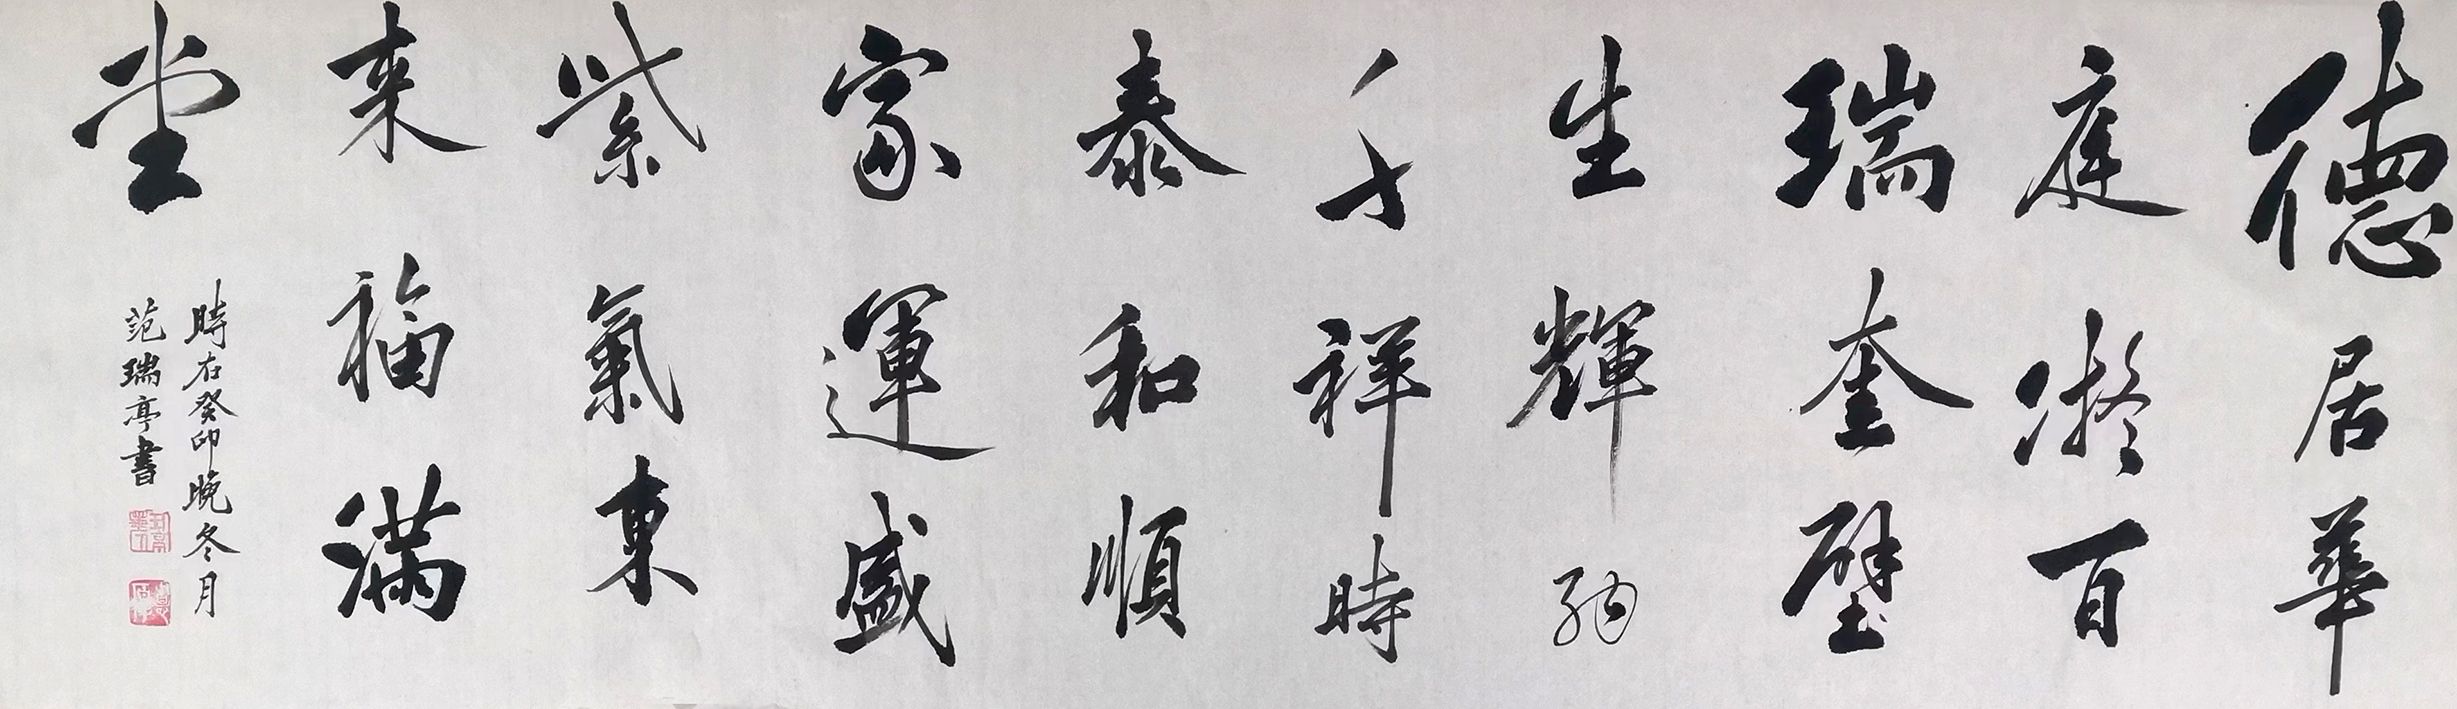 德居華
庭凝百
瑞奎璧
生輝納
千祥時
泰和順
家運盛
紫氣東
来福滿
堂
時在癸卯晚冬月
范瑞亭書